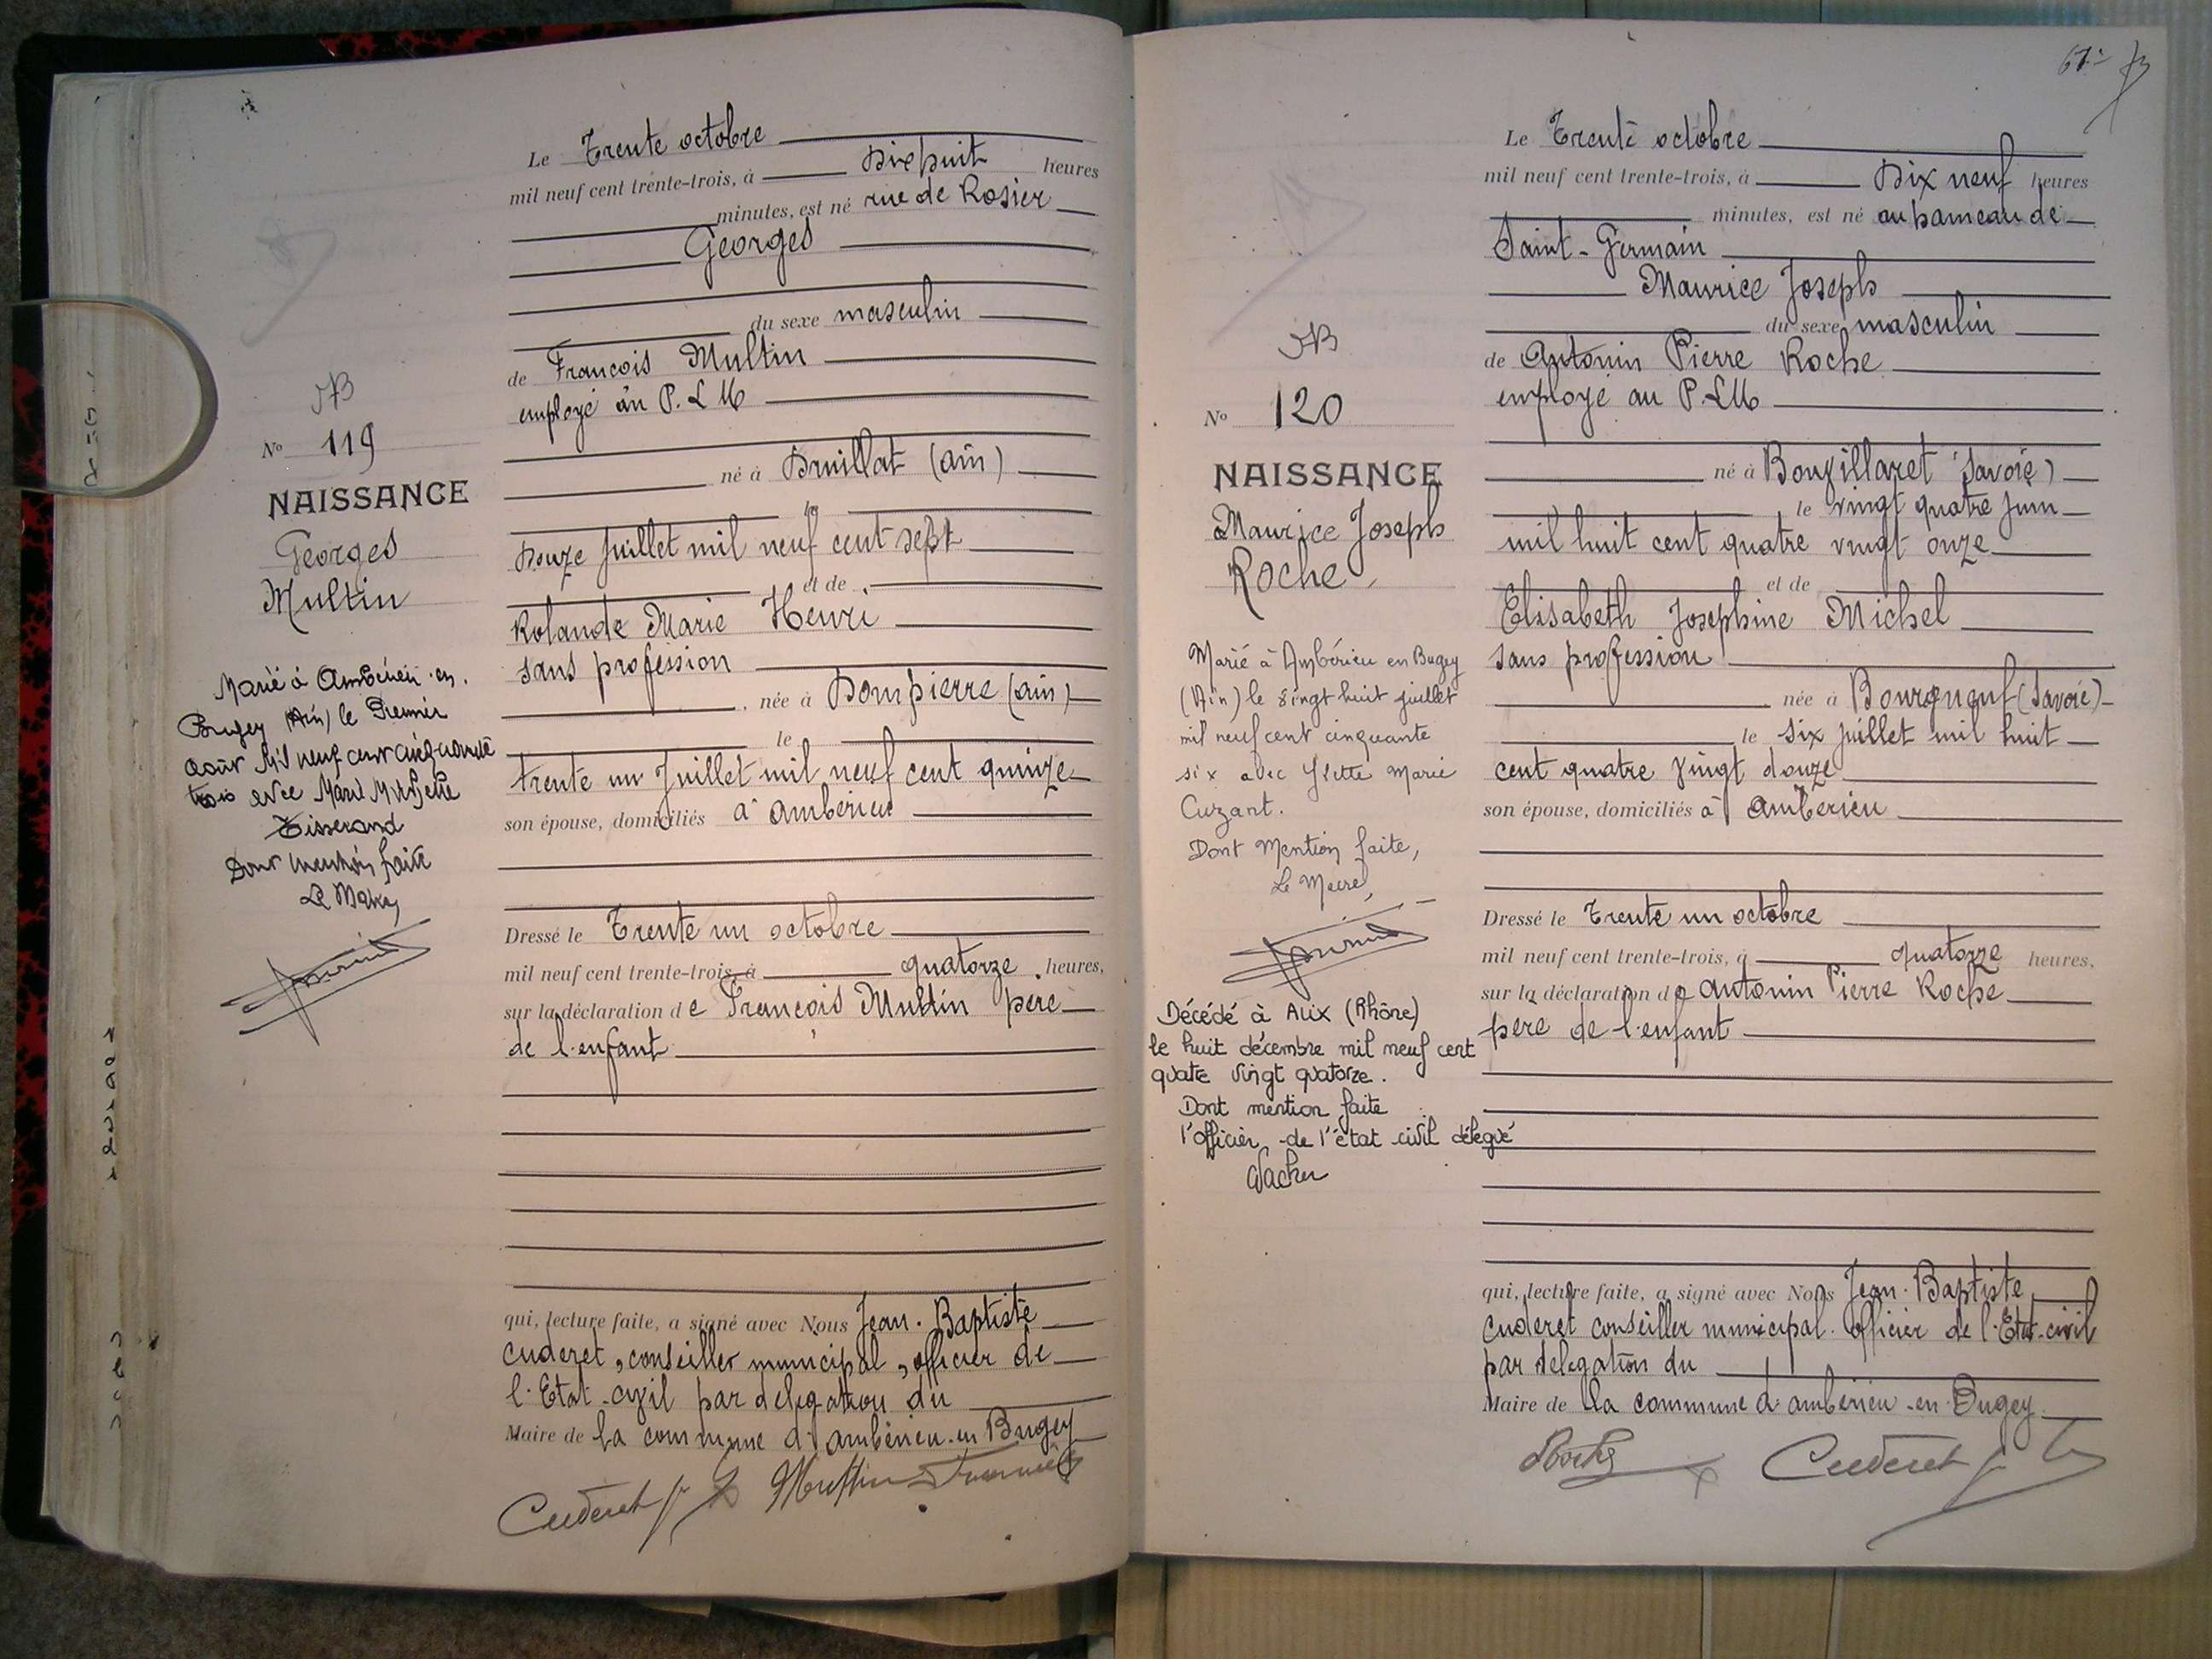 Le Trente octobre
mil neuf cent trente-trois, à Dix huit heures
minutes, est né rue de Rosier
Georges
du sexe masculin
de Francois Multin
employé au P.L.M
né à Druillat (ain)
le
Douze Juillet mil neuf cent sept
et de
Rolande Marie Henri
sans profession
, née à Dompierre (ain)
le
trente un Juillet mil neuf cent quinze
son épouse, domiciliés à ambérieu
Dressé le Trente un octobre
mil neuf cent trente-trois, à quatorze heures,
sur la déclaration de François Multin père
de l'enfant
qui, lecture faite, a signé avec Nous Jean-Baptiste
Cuderet, conseiller municipal, officier de
l'Etat-civil par delegation du
Maire de la commune d'ambérieu-en Bugey
Cuderet Multin
No 119
NAISSANCE
Georges
Multin
Marié à Ambérieu-en-
Bugey (Ain) le Premier
août Mil neuf cent cinquante
trois avec Marie
Tisserand
Dont mention faite
Le Maire,
61
Le Trente octobre
mil neuf cent trente-trois, à Dix neuf heures
minutes, est né au hameau de
Saint-Germain
Maurice Joseph
du sexe masculin
de Antonin Pierre Roche
employé au P.L.M
né à Bonvillaret (Savoie)
le vingt quatre Juin
mil huit cent quatre vingt onze
et de
Elisabeth Josephine Michel
sans profession
née à Bourgneuf (Savoie)
le six juillet mil huit
cent quatre vingt douze
son épouse, domiciliés à amberieu
Dressé le Trente un octobre
mil neuf cent trente-trois, à quatorze heures,
sur la déclaration de Antonin Pierre Roche
père de l'enfant
qui, lecture faite, a signé avec Nous Jean-Baptiste
Cuderet conseiller municipal. officier de l'Etat-civil
par delegation du
Maire de la commune d'ambérieu-en-Bugey
Roche Cuderet
No 120
NAISSANCE
Maurice Joseph
Roche
Marié à Ambérieu en Bugey
(Ain) le vingt huit juillet
mil neuf cent cinquante
six avec Yvette Marie
Cuzant.
Dont Mention faite,
Le Maire,
Décédé à Alix (Rhône)
le huit décembre mil neuf cent
quatre vingt quatorze.
Dont mention faite
l'officier de l'état civil délégué